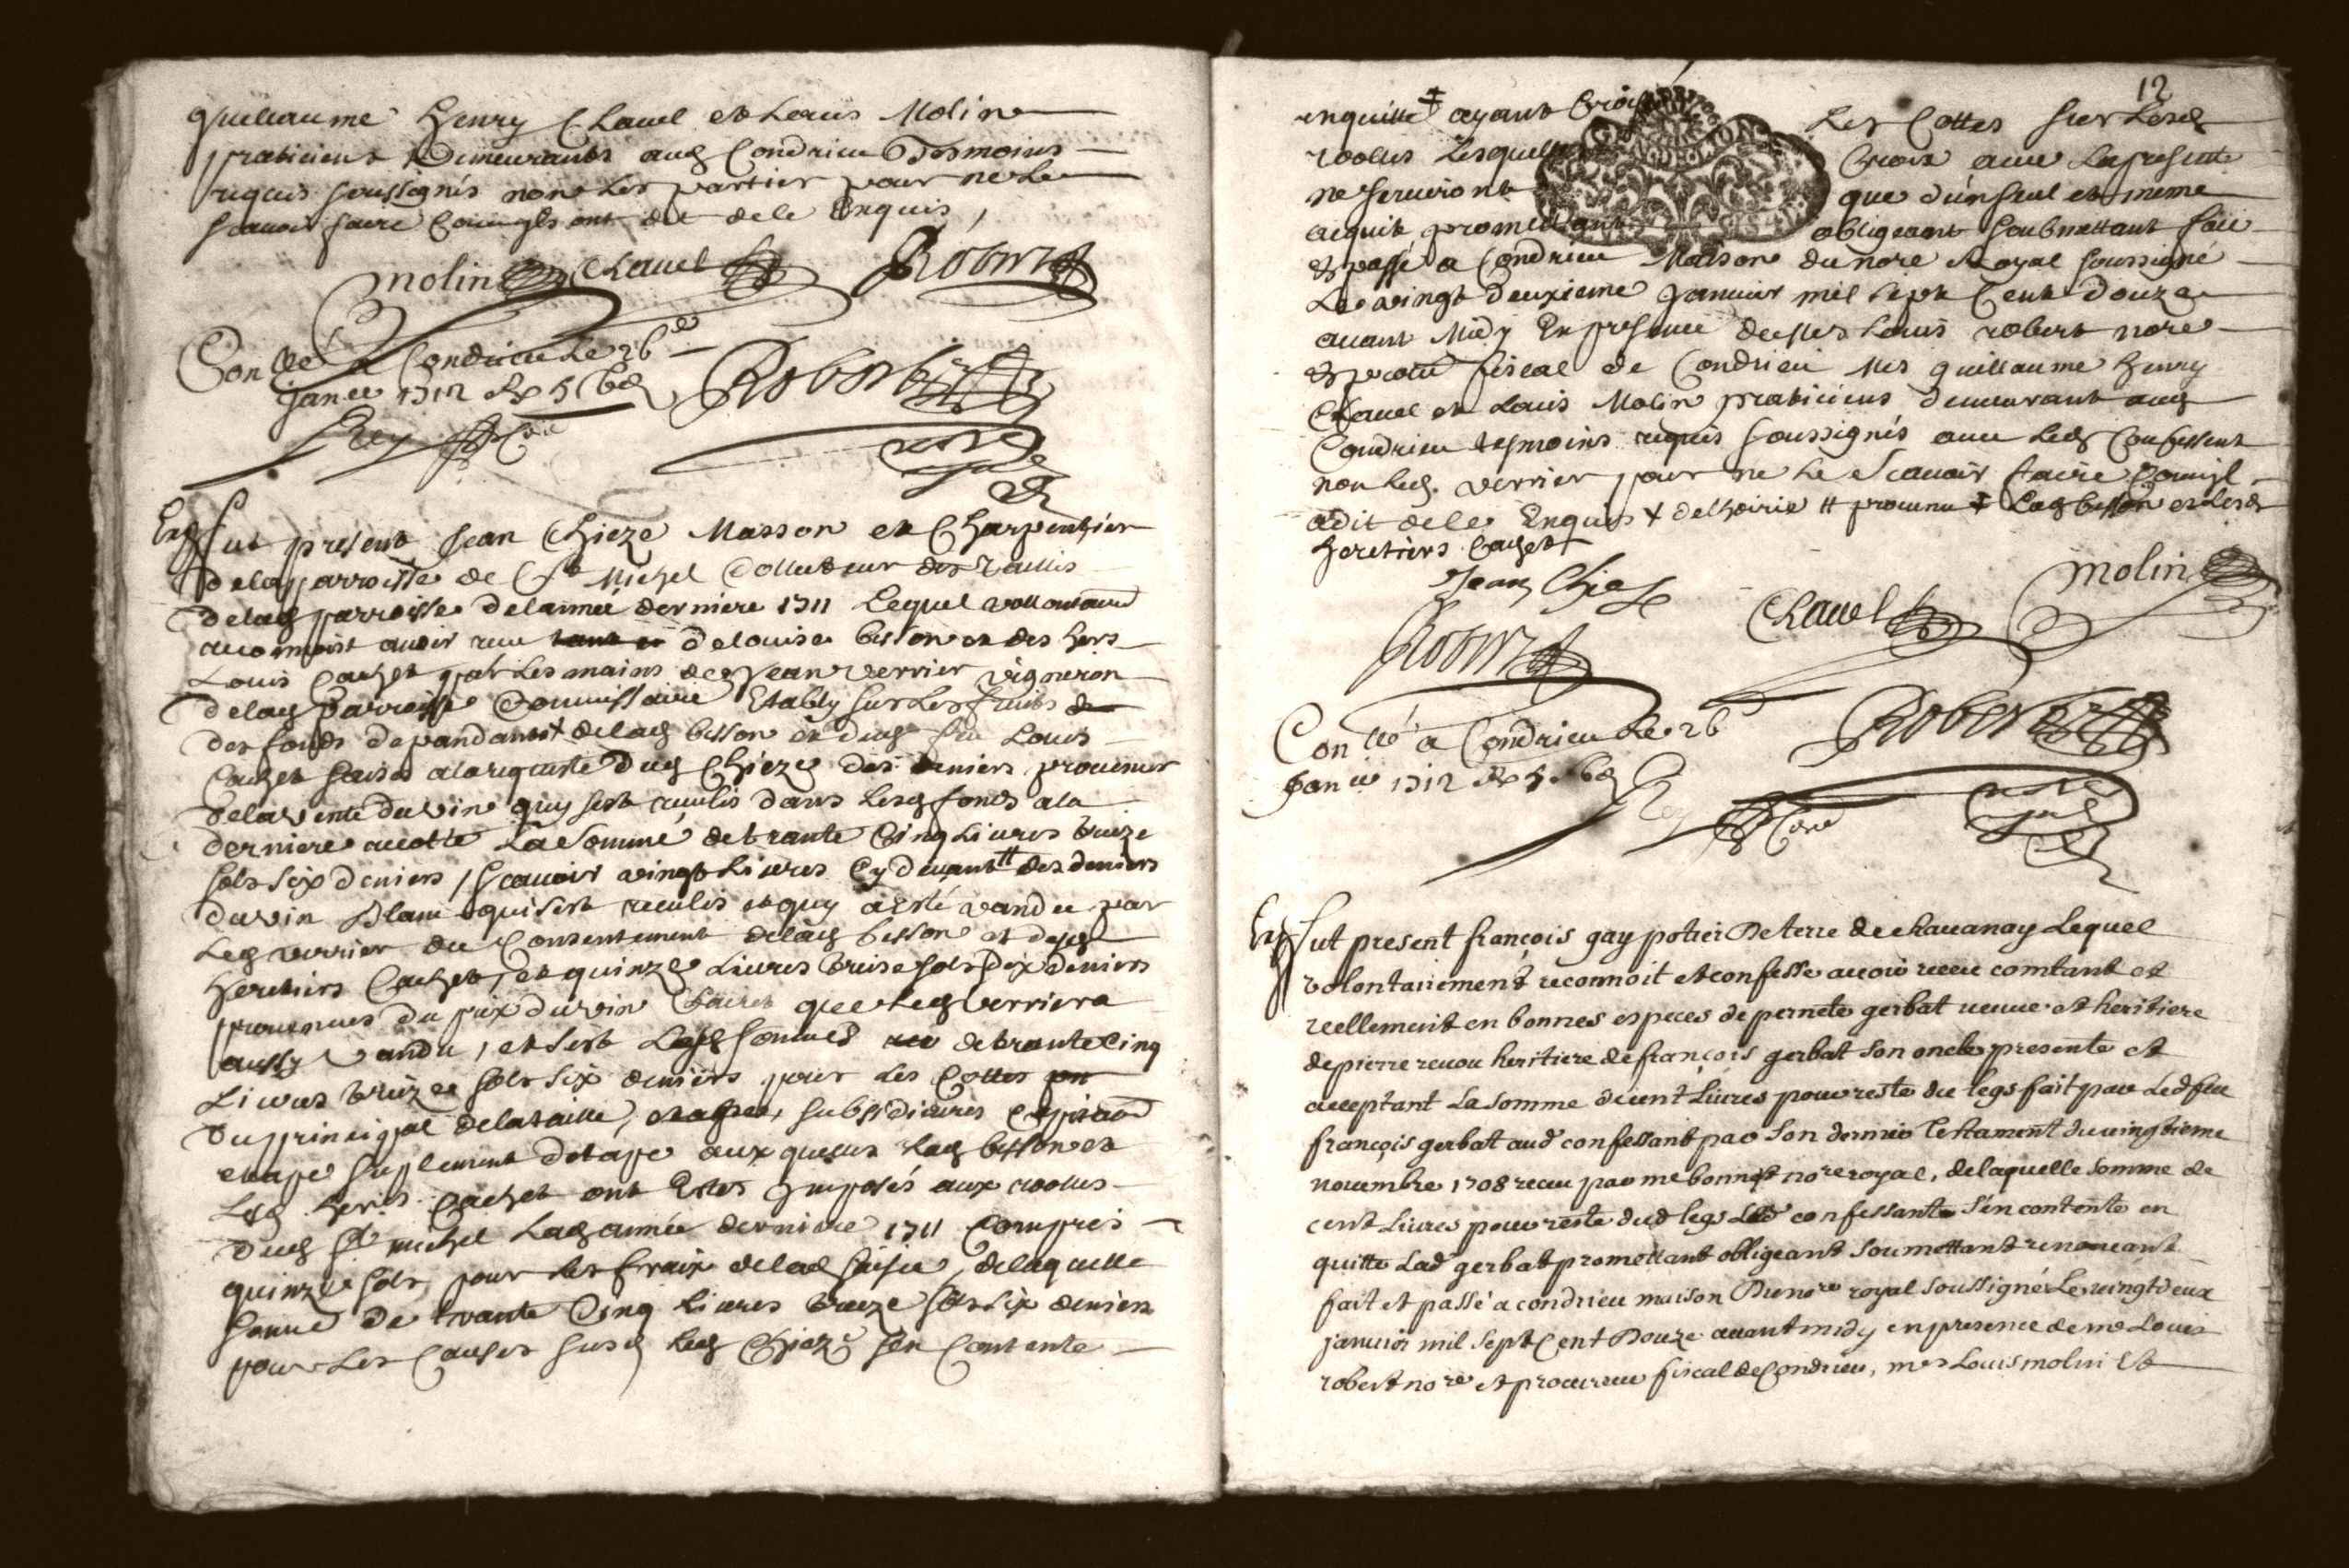 guilleaume henry Chavel et Louis Molin
praticiens demeurants aud Condrieu Tesmoins
requis soussignés non les parties pour ne le
scavoir faire comm'ils ont dit de le enquis,
Molin Chavel Robert
Conllé a Condrieu le 26e
janer 1712 R 5
Rey
Robert
nore
Fut present Jean Chieze Masson et Charpentier
de la parroisse de St Michel Collecteur des Tailles
de lad parroisse de lannée derniere 1711 Lequel
avoir receu de Louise besson et des hers
Louis Cachet par les mains de Jean verrier vigneron
de lad Parroisse Commissaire Etably sur les fruits de
des fonds dependants de lad besson et dud feu Louis
Cachet saisis a la requeste dud Chieze des deniers provenus
de la vente du vin quy sest ceullis dans lesd fonds a la
derniere recolte La Somme de trante Cinq Livres treize
sols six deniers, scavoir vingt Livres Cy devant # des deniers
du vin blanc qui sest ceullis et quy a esté vandu par
led verrier du Consentement de lad besson et desd
heretiers Cachet, et quinze Livres treise sols six deniers
provenues du prix du vin que led verrier a
aussy vandu, et sest Lad somme de trante Cinq
Livres treize sols six deniers pour les Cottes
du principal de la taille, subsidiaires
etape suplement detape auxquels lad besson et
Lesd hers Cachet ont Estes Imposés aux roolles
dud St Michel Lad année derniere 1711 Compris
quinze sols pour les fraix de lad saisie, de laquelle
somme de trante Cinq Livres treize sols six deniers
pour les Causes susd led Chieze sen Contente
12
enquitte ‡ ayant Croisé Les Cottes sur lesd
roolles Lesquelles Croix avec la presente
ne serviront que d'un seul et mesme
acquit promettant obligeant soubmettant fait
et passé a Condrieu Maison du nore Royal soussigné
Le vingt deuxieme Janvier mil sept Cent douze
avant Midy En presence de Mes Louis robert nore
et procur fiscal de Condrieu Mes guillaume henry
Chavel et Louis Molin praticiens demeurant aud
Condrieu tesmoins requis soussignés avec led Confessent
non led. verrier pour ne le Scavoir faire comm'il
a dit de le Enquis + delhoirie # provenu ‡ Lad besson et lesd
heretiers Cachet
Jean Chieze
Molin
Chavel
Robert
Conllé a Condrieu le 26
Janer 1712 R 5
Robert
Rey
nore
Fut present françois gay potier De terre de chavanay Lequel
volontairement reconnoit et confesse avoir receu comtant et
reellement en bonnes especes de pernete gerbat veuve et heritiere
de pierre revou heritiere de françois gerbat son oncle presente et
acceptant La somme de cent Livres pour reste du legs fait par Led feu
françois gerbat aud confessant par son dernier Testament du vingtieme
novembre 1708 receu par me bonnet nore royal, de laquelle somme de
cent Livres pour reste dud legs Led confessante sen contente en
quitte Lad gerbat promettant obligeant soumettant renonceant
fait et passé a condrieu maison Du nore royal soussigné Le vingt deux
janvier mil sept Cent Douze avant midy en presence de me Louis
robert nore et procureur fiscal de Condrieu, mes Louis molin Et